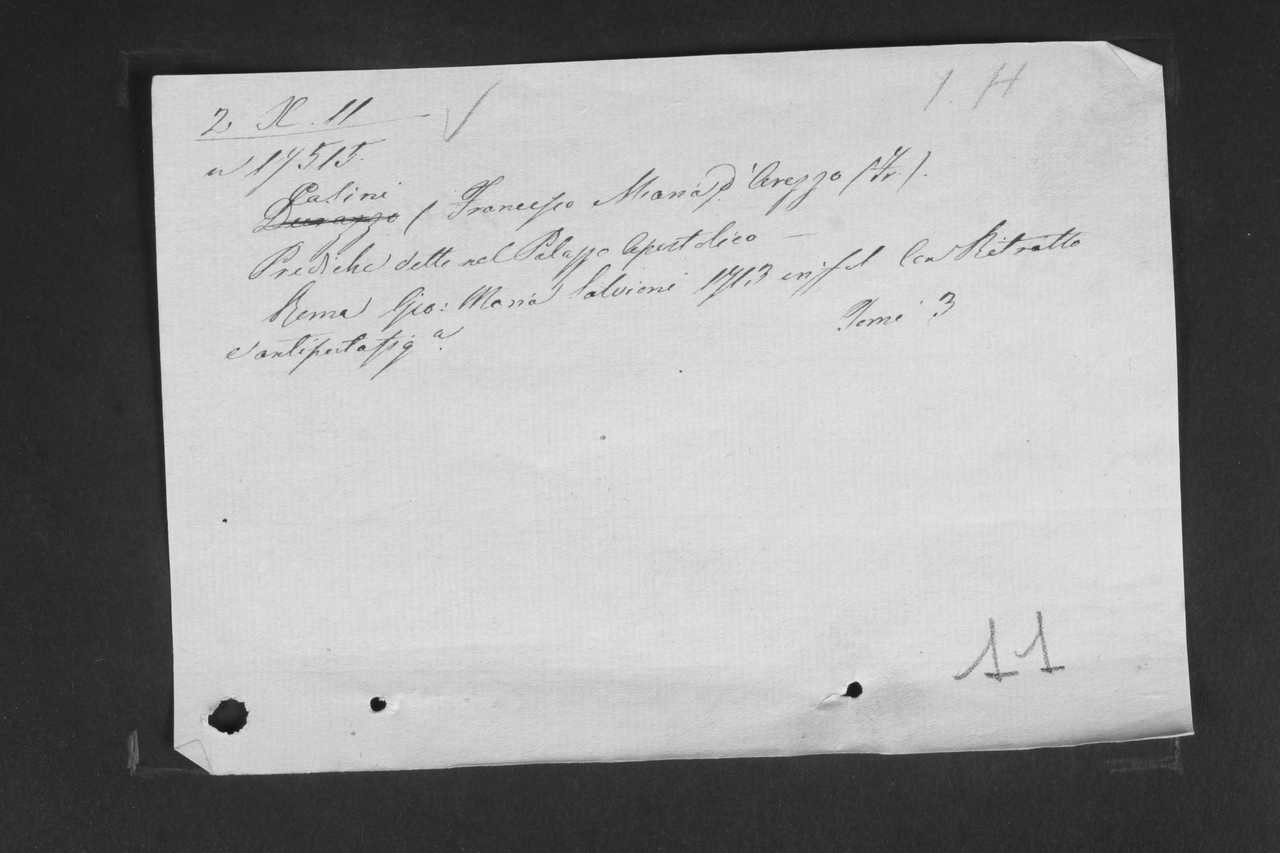 2 X. 11
1. H
n 17515.
Casini
Durazzo ( Francesco Maria) d'Arezzo (Fr.).
Prediche dette nel Palazzo Apostolico —
Roma Gio: Maria Salvioni 1713 in fol Con Ritratto
e antiporta fig.a
Tomi 3
11